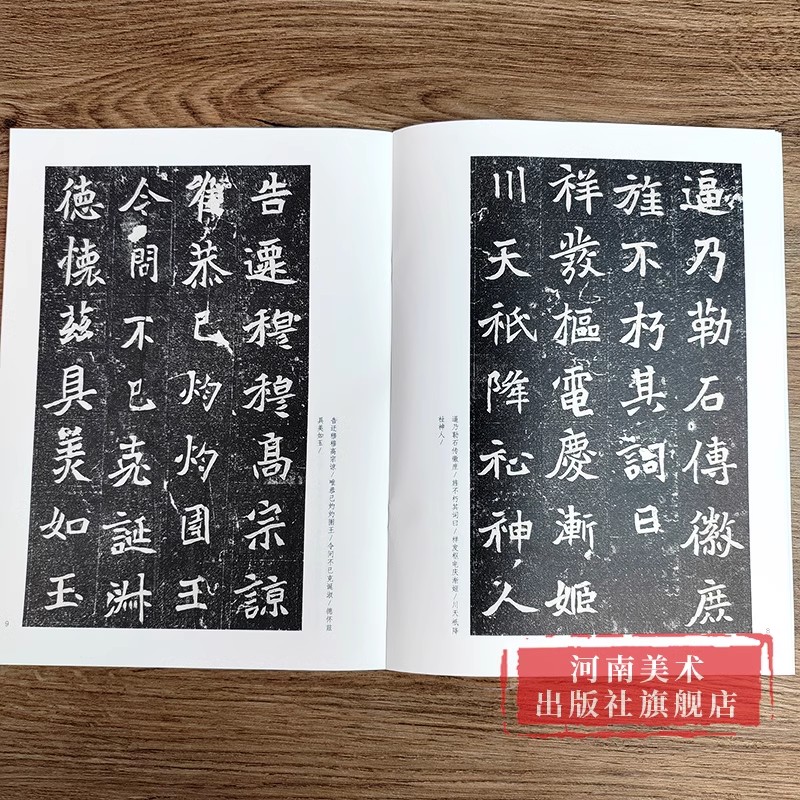 逼乃勒石傳徽庶
旌不朽其詞曰
祥發樞電慶漸姬
川天祇降祉神人
逼乃勒石传徽庶/旌不朽其词曰/祥发枢电庆渐姬/川天祇降
祉神人/
告遷穆穆高宗諒
唯恭已灼灼圉王
令問不已克誕淑
德懷茲具美如玉
告迁穆穆高宗谅/唯恭已灼灼圉王/令问不已克诞淑/德怀兹
具美如玉/
9
河南美术
出版社旗舰店